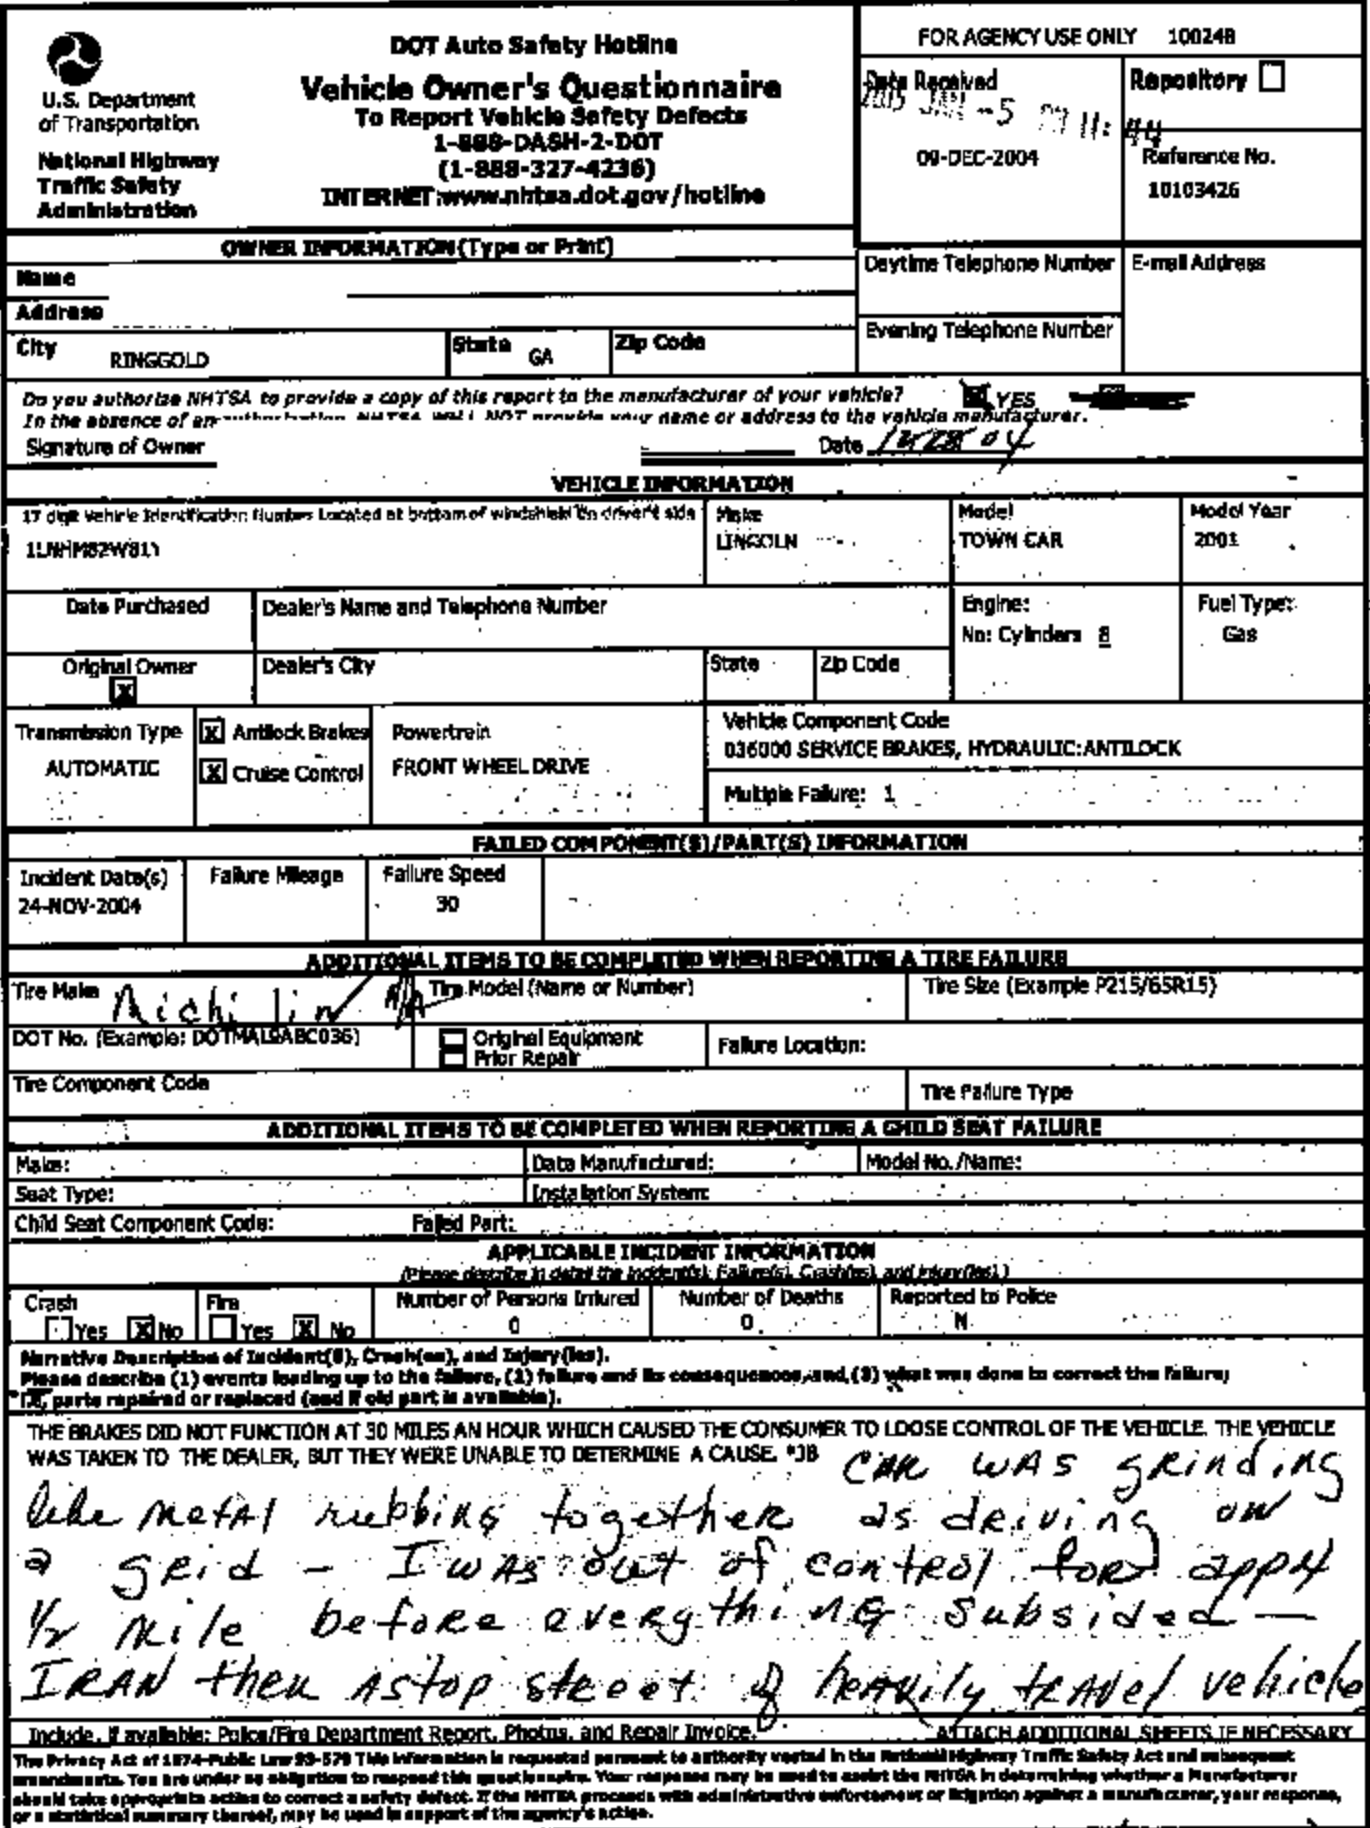 DOT Auto Safety Hotline
Vehicle Owner's Questionnaire
To Report Vehicle Safety Defects
1-888-DASH-2-DOT
(1-888-327-4236)
INTERNET:www.nhtsa.dot.gov/hotline
U.S. Department
of Transportation
National Highway
Traffic Safety
Administration
FOR AGENCY USE ONLY 100248
Date Received
JAN -5 11: 44
09-DEC-2004
Repository
Reference No.
10103426
OWNER INFORMATION (Type or Print)
Name
Address
City RINGGOLD State GA Zip Code
Daytime Telephone Number E-mail Address
Evening Telephone Number
Do you authorize NHTSA to provide a copy of this report to the manufacturer of your vehicle? YES
In the absence of an authorization, NHTSA WILL NOT provide your name or address to the vehicle manufacturer.
Signature of Owner Date 12/28/04
VEHICLE INFORMATION
17 digit Vehicle Identification Number Located at bottom of windshield on driver's side
1LNHM82W811
Make
LINCOLN
Model
TOWN CAR
Model Year
2001
Date Purchased Dealer's Name and Telephone Number
Engine:
No: Cylinders 8
Fuel Type:
Gas
Original Owner
X
Dealer's City State Zip Code
Transmission Type
AUTOMATIC
X Antilock Brakes
X Cruise Control
Powertrain
FRONT WHEEL DRIVE
Vehicle Component Code
036000 SERVICE BRAKES, HYDRAULIC:ANTILOCK
Multiple Failure: 1
FAILED COMPONENT(S)/PART(S) INFORMATION
Incident Date(s)
24-NOV-2004
Failure Mileage
Failure Speed
30
ADDITIONAL ITEMS TO BE COMPLETED WHEN REPORTING A TIRE FAILURE
Tire Make Michilin N/A Tire Model (Name or Number) Tire Size (Example P215/65R15)
DOT No. (Example: DOTMAL9ABC036) Original Equipment
Prior Repair
Failure Location:
Tire Component Code Tire Failure Type
ADDITIONAL ITEMS TO BE COMPLETED WHEN REPORTING A CHILD SEAT FAILURE
Make: Date Manufactured: Model No./Name:
Seat Type: Installation System:
Child Seat Component Code: Failed Part:
APPLICABLE INCIDENT INFORMATION
(Please describe in detail the incident(s), Failure(s), Crash(es), and injury(ies).)
Crash
Yes X No
Fire
Yes X No
Number of Persons Injured
0
Number of Deaths
0
Reported to Police
N
Narrative Description of Incident(s), Crash(es), and Injury(ies).
Please describe (1) events leading up to the failure, (2) failure and its consequences, and, (3) what was done to correct the failure;
I.E, parts repaired or replaced (and if old part is available).
THE BRAKES DID NOT FUNCTION AT 30 MILES AN HOUR WHICH CAUSED THE CONSUMER TO LOOSE CONTROL OF THE VEHICLE. THE VEHICLE
WAS TAKEN TO THE DEALER, BUT THEY WERE UNABLE TO DETERMINE A CAUSE. *JB CAR WAS GRINDING
like metal rubbing together as driving on
a grid - I was out of control for appx
1/2 mile before everything subsided —
I RAN then A stop street of heavily travel vehicle
Include, if available: Police/Fire Department Report, Photos, and Repair Invoice. ATTACH ADDITIONAL SHEETS IF NECESSARY
The Privacy Act of 1974-Public Law 93-579 This information is requested pursuant to authority vested in the National Highway Traffic Safety Act and subsequent
amendments. You are under no obligation to respond this questionnaire. Your response may be used to assist the NHTSA in determining whether a Manufacturer
should take appropriate action to correct a safety defect. If the NHTSA proceeds with administrative enforcement or litigation against a manufacturer, your response,
or a statistical summary thereof, may be used in support of the agency's action.